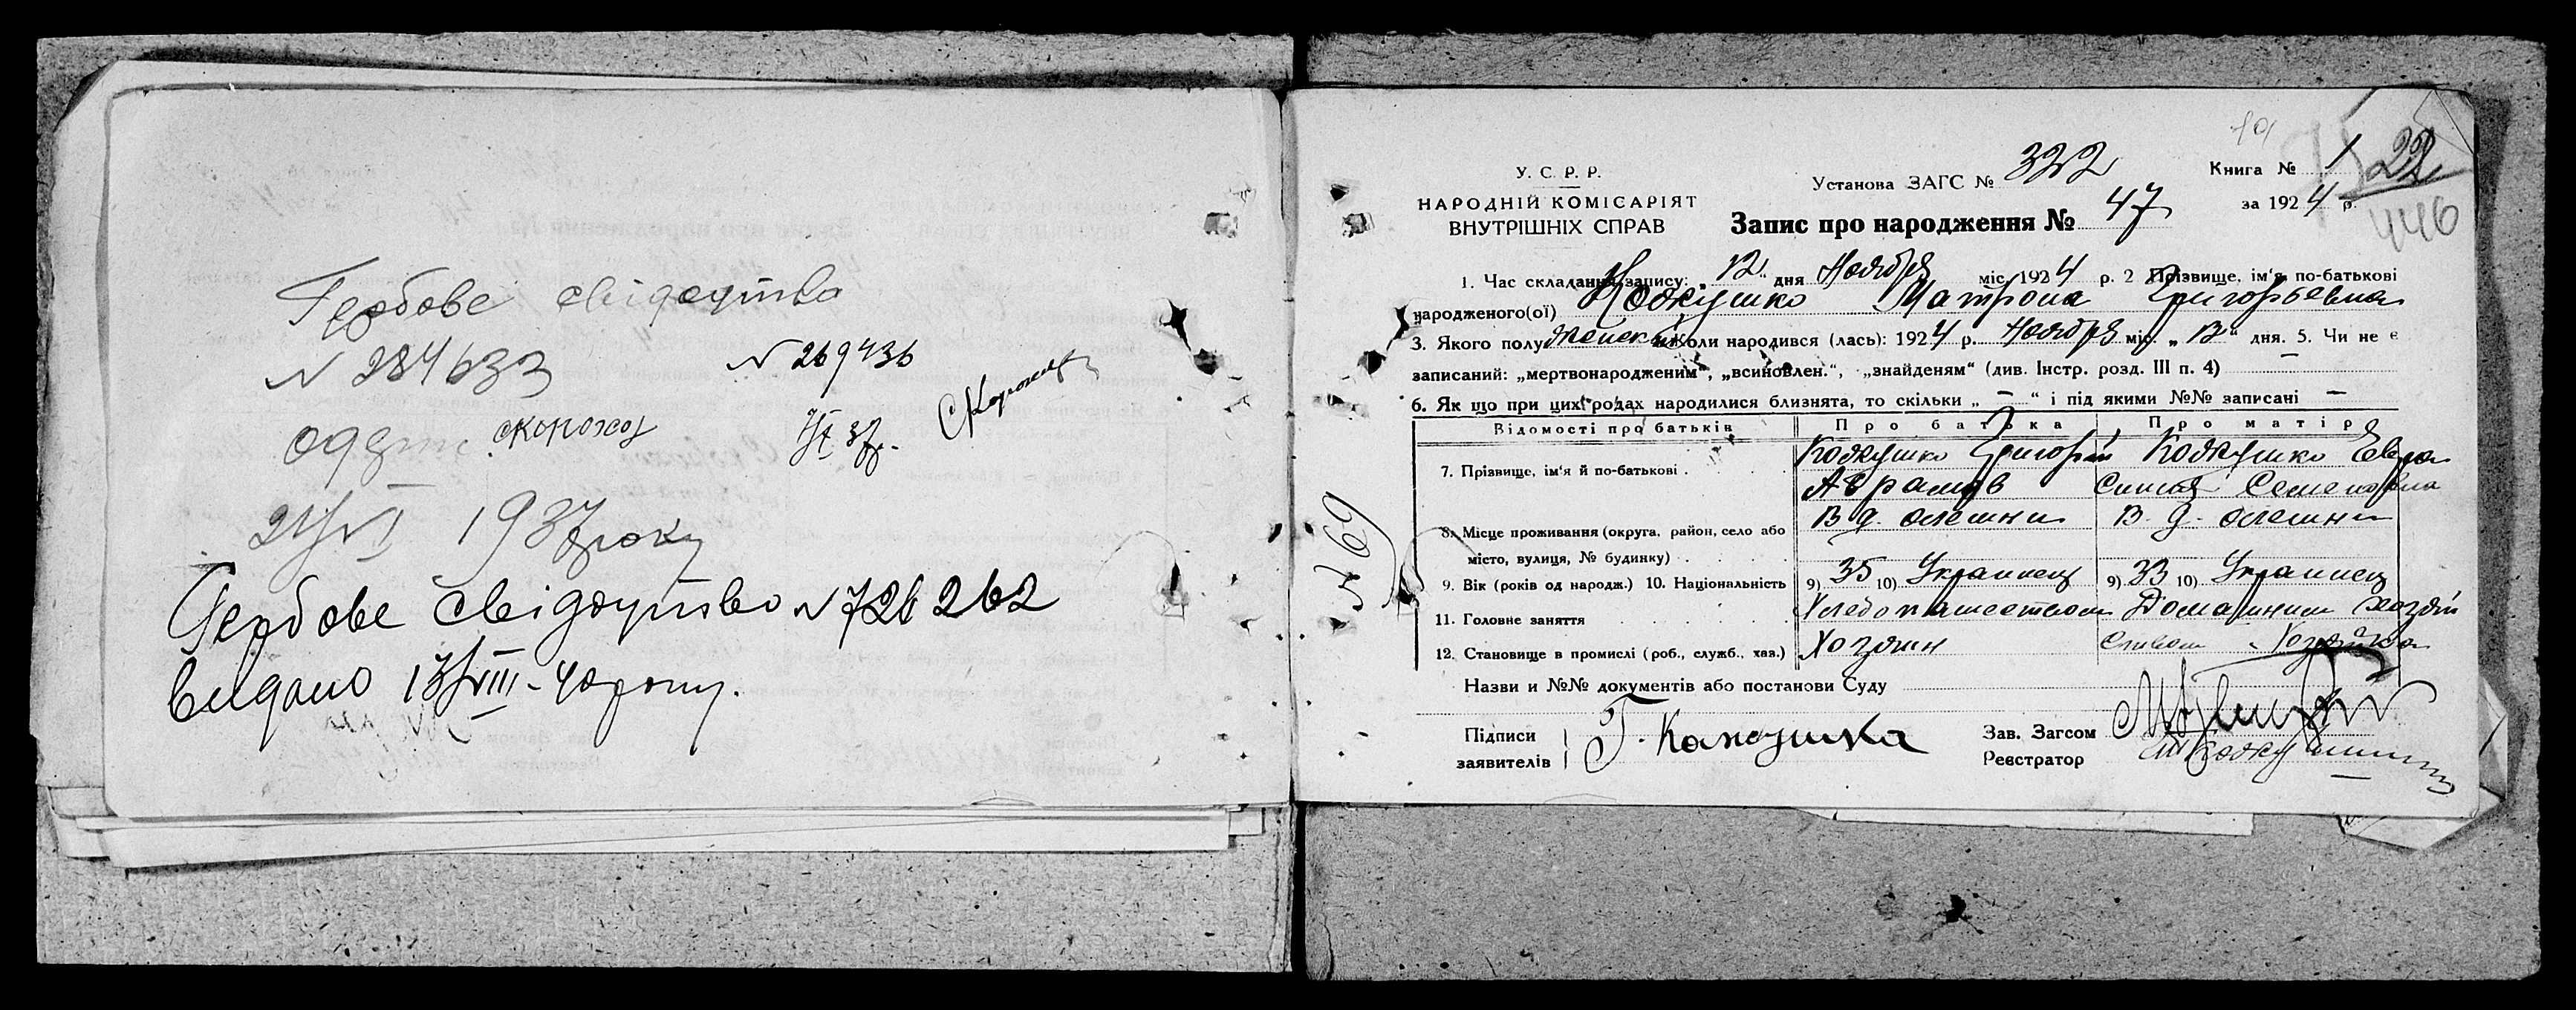 Гербове свідоцтво
№ 284633
№ 269436
скорохог
24/VI 1937 року
Гербове свідоцтво № 726262
видано 13/VIII-40 року.
№ 69
У. С. Р. Р.
НАРОДНІЙ КОМІСАРІЯТ
ВНУТРІШНІХ СПРАВ
Установа ЗАГС № 332
Книга № 1
за 1924 р.
22
446
Запис про народження № 47
1. Час складання запису: „12“ дня Ноября міс. 1924 р. 2 Прізвище, ім'я, по-батькові
народженого(ої) Кожушко Матрона Григорьевна
3. Якого полу Женский Коли народився (лась): 1924 р. Ноября міс. „12“ дня. 5. Чи не є
записаний: „мертвонародженим“, „всиновлен.“, „знайденям“ (див. Інстр. розд. III п. 4)
6. Як що при цих родах народилися близнята, то скільки „ — “ і під якими №№ записані —
Відомості про батьків Про батька Про матір
7. Прізвище, ім'я й по-батькові Кожушко Григорий Кожушко Евро
Аврамов синия Семеновна
8. Місце проживання (округа, район, село або В. д. Олешни В. д. Олешни
місто, вулиця, № будинку)
9. Вік (років од народж.) 10. Національність 9) 35 10) Украинец 9) 33 10) Украинец
11. Головне заняття Хлебопашеством Домашним хозяй
12. Становище в промислі (роб., служб., хаз.) Хозяин ством Хозяйка
Назви и №№ документів або постанови Суду
Підписи
заявителів Г. Кожушка
Зав. Загсом
Реєстратор